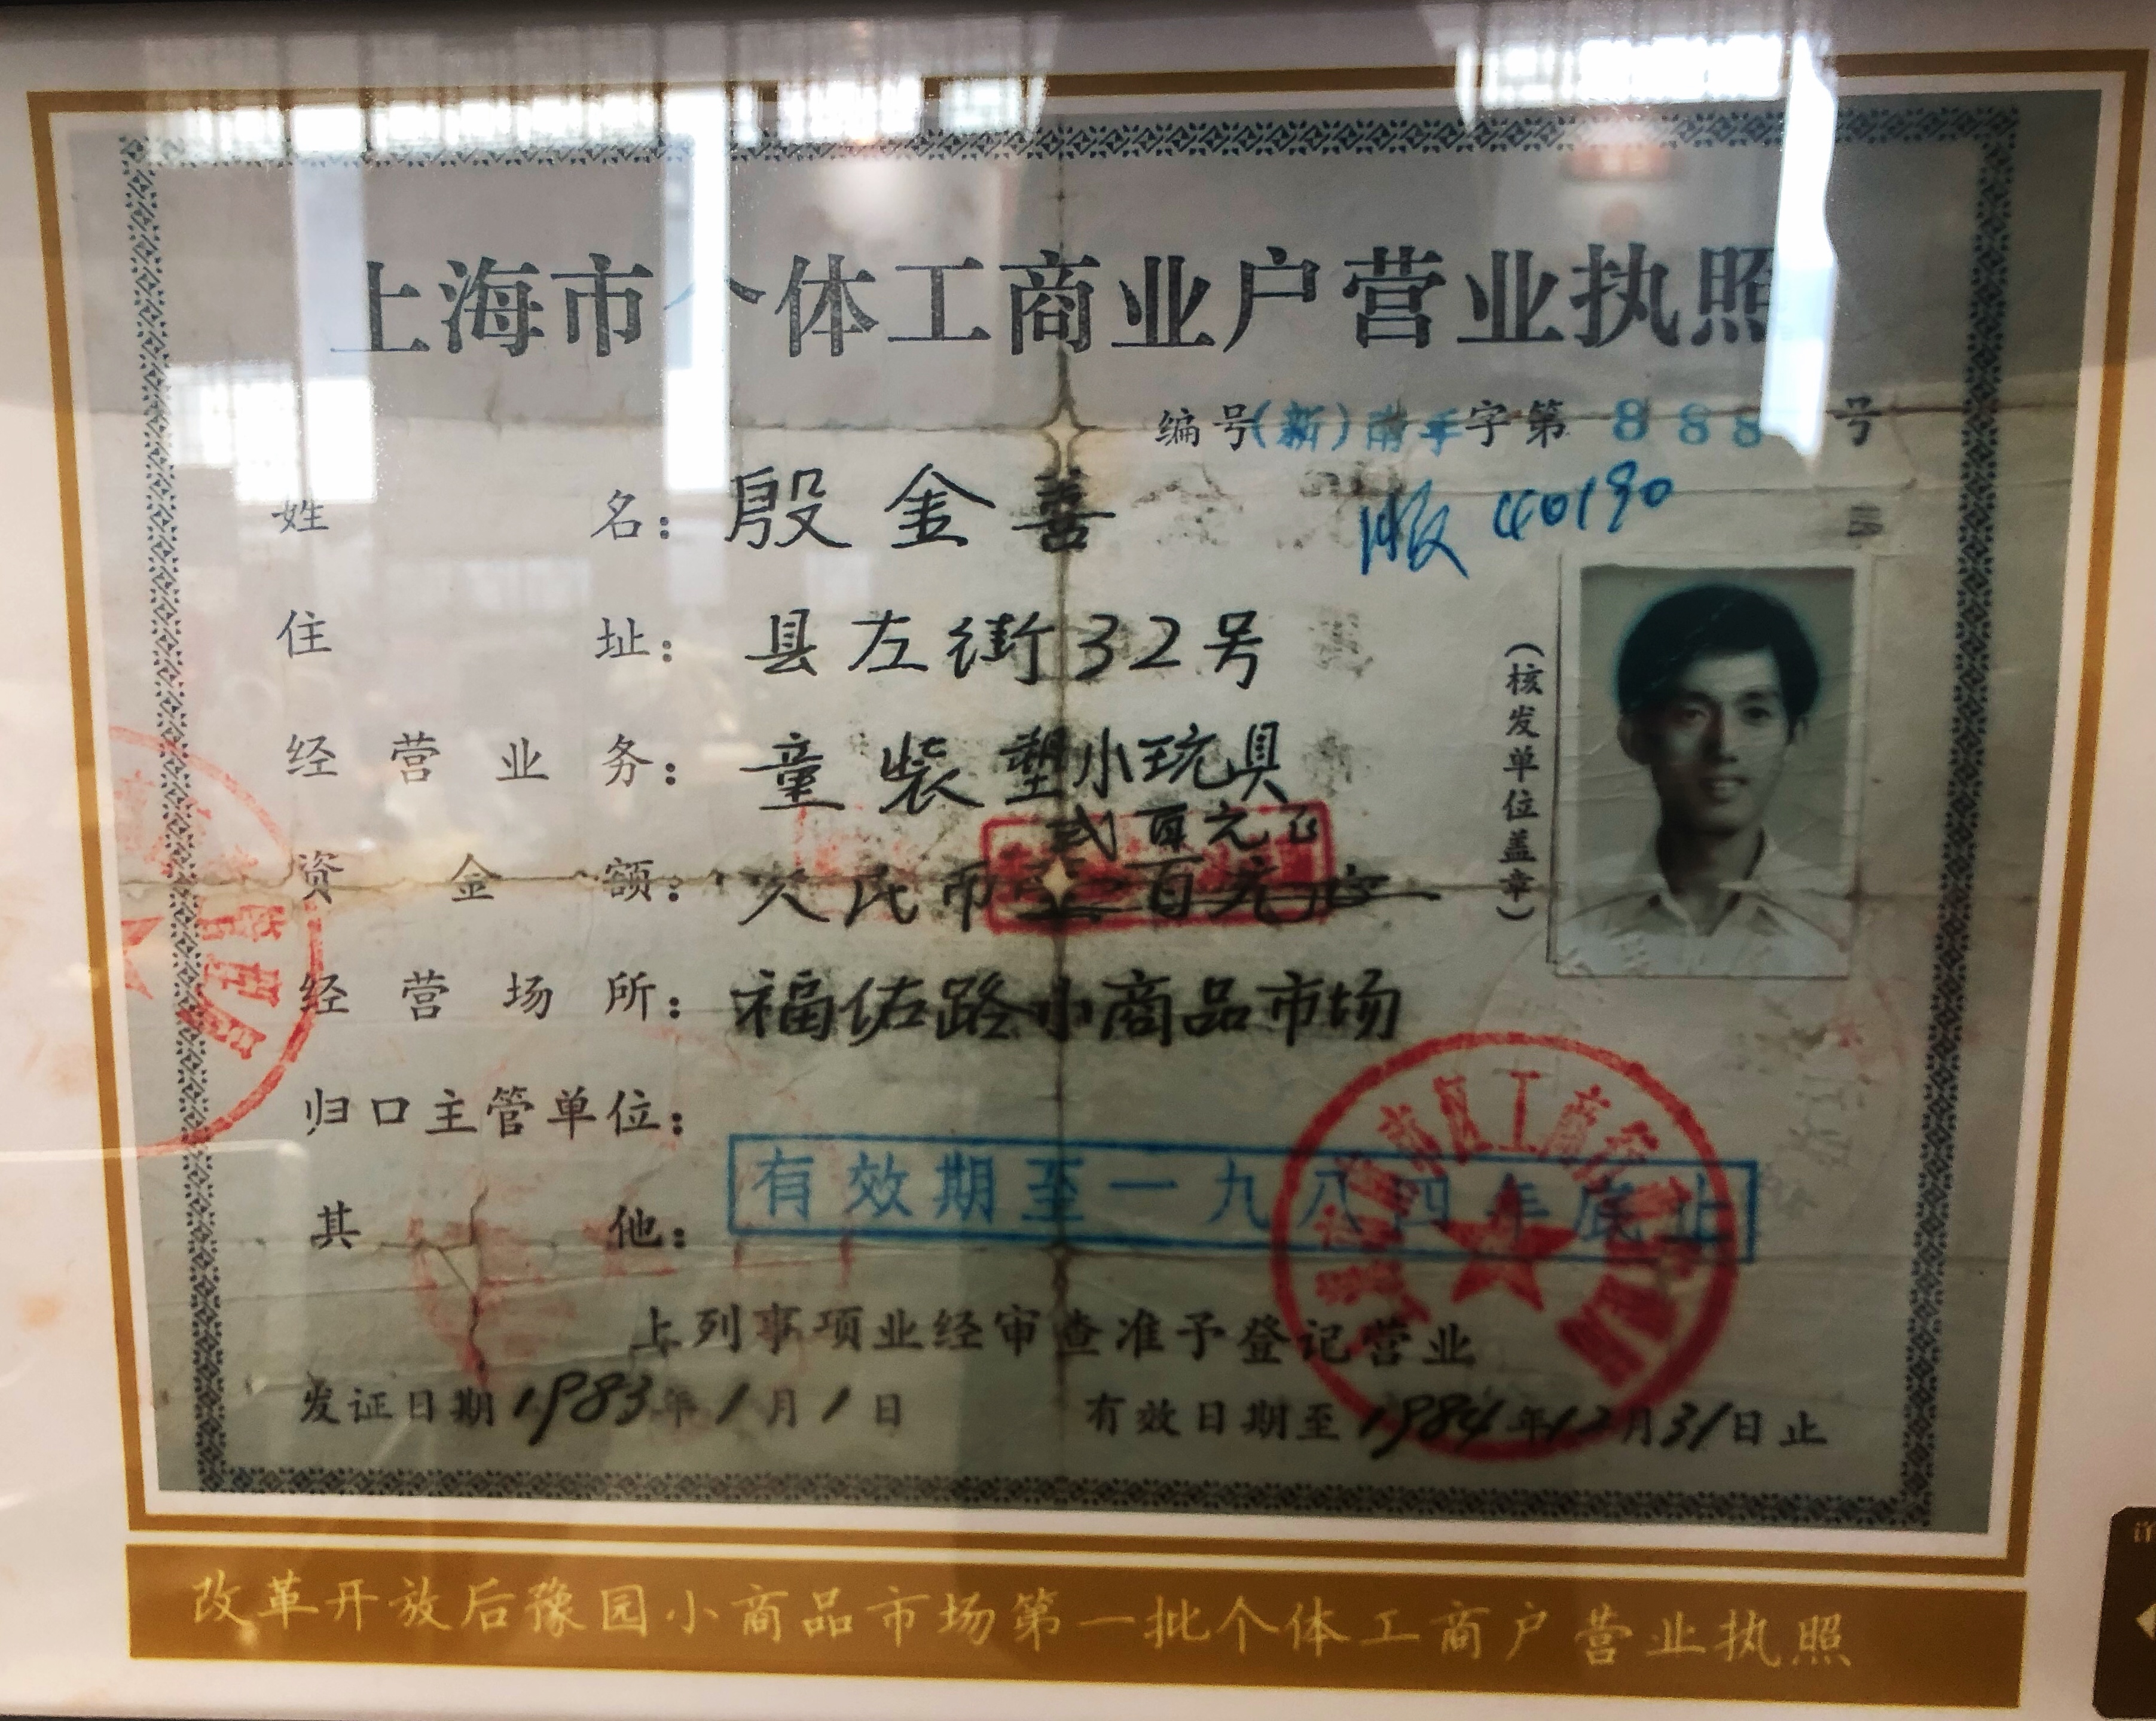 上海市个体工商业户营业执照
编号(新)南手字第888号
姓名：殷金善
服 40190
住址：县左街32号
(核发单位盖章)
经营业务：童装塑小玩具
贰百元正
资金额：人民币 百元正
经营场所：福佑路小商品市场
归口主管单位：
有效期至一九八四年底止
其他：
上列事项业经审查准予登记营业
发证日期1983年1月1日 有效日期至1984年12月31日止
改革开放后豫园小商品市场第一批个体工商户营业执照